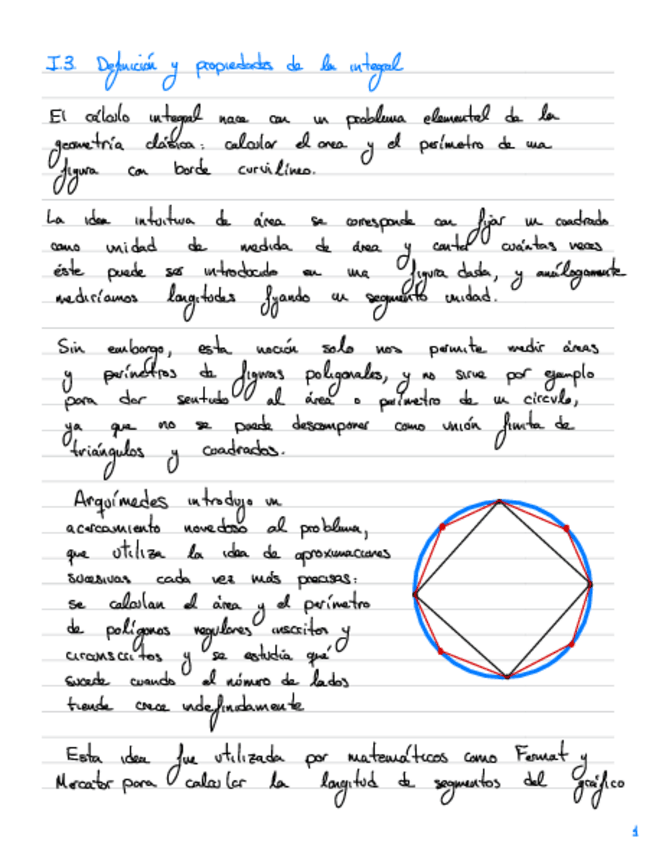 I.3 Definición y propiedades de la integral
El cálculo integral nace con un problema elemental de la
geometría clásica: calcular el area y el perímetro de una
figura con borde curvilíneo.
La idea intuitiva de área se corresponde con fijar un cuadrado
como unidad de medida de área y contar cuántas veces
éste puede ser introducido en una figura dada, y análogamente
mediríamos longitudes fijando un segmento unidad.
Sin embargo, esta noción solo nos permite medir áreas
y perímetros de figuras poligonales, y no sirve por ejemplo
para dar sentido al área o perímetro de un círculo,
ya que no se puede descomponer como unión finita de
triángulos y cuadrados.
Arquímedes introdujo un
acercamiento novedoso al problema,
que utiliza la idea de aproximaciones
sucesivas cada vez más precisas:
se calculan el área y el perímetro
de polígonos regulares inscritos y
circunscritos y se estudia qué
sucede cuando el número de lados
tiende crece indefinidamente
Esta idea fue utilizada por matemáticos como Fermat y
Mercator para calcular la longitud de segmentos del gráfico
1